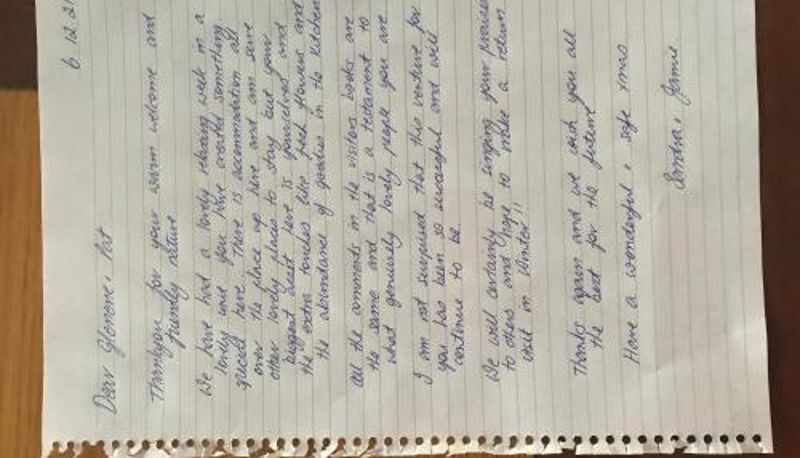 6.12.2
Dear Glenone & Pat
Thankyou for your warm welcome and
friendly nature
We have had a lovely relaxing week in a
lovely unit you have created something
special here. There is accommodation all
over the place up here and am sure
other lovely places to stay but your
biggest asset here is yourselves and
the extra touches like fresh flowers and
the abundance of goodies in the kitchen
All the comments in the visitors books are
the same and that is a testament to
what genuinely lovely people you are
I am not surprised that this venture for
you has been so successful and will
continue to be.
We will certainly be singing your praises
to others and hope to make a return
visit in winter!!
Thanks again and we wish you all
the best for the future
Have a wonderful & safe xmas
Sondra & Jamie